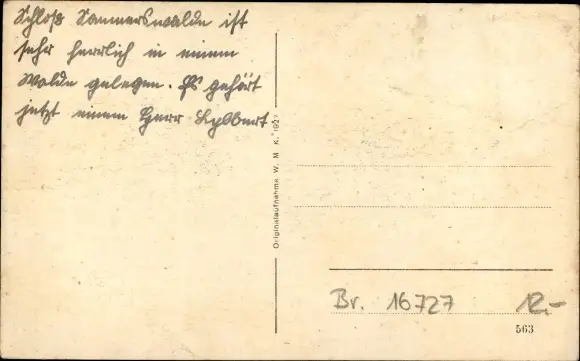 Schloß Sommerswalde ist
sehr herrlich in einem
Walde gelegen. Es gehört
jetzt einem Herr
Originalaufnahme W. M. K. 1927
Br. 16727 12,-
563